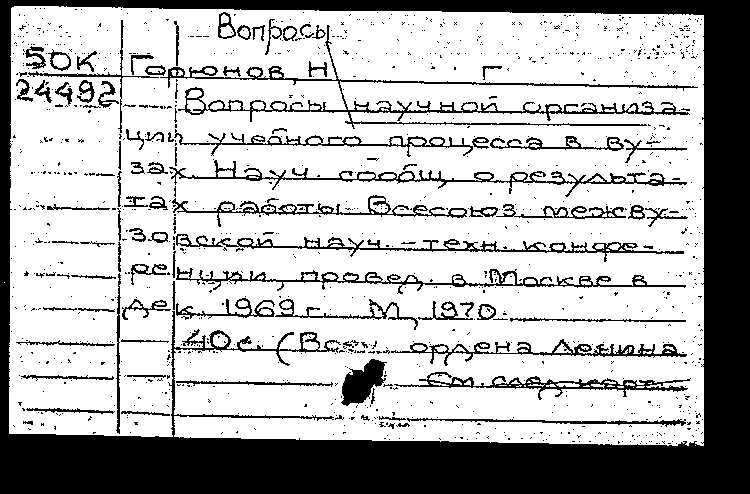 Вопросы
50К
24492
Горюнов, Н Г
Вопросы научной организа-
ции учебного процесса в ву-
зах Науч. сообщ. о результа-
тах работы Всесоюз. межву-
зовской науч. - техн. конфе-
ренции, провед. в Москве в
дек. 1969 г. М, 1970.
40 с. (Всеч ордена Ленина
См. след карт